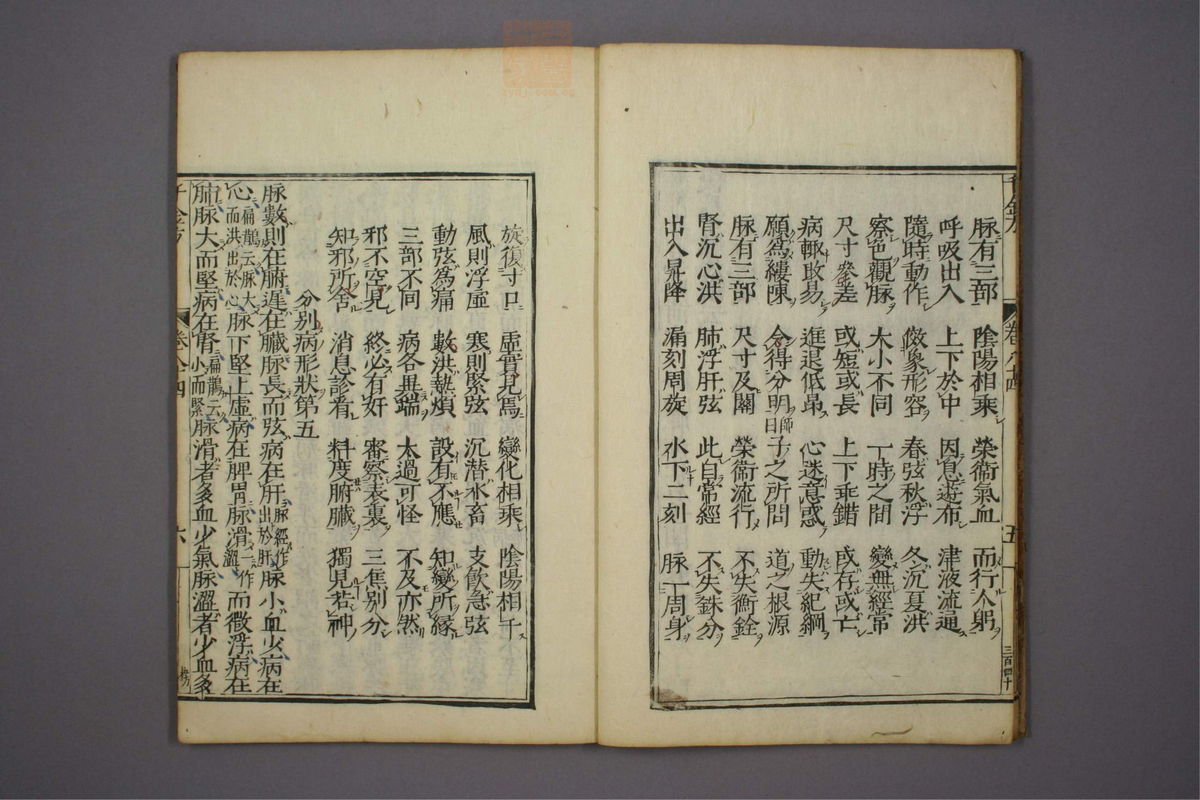 脉有三部 陰陽相乘 榮衞氣血 而行人躬
呼吸出入 上下於中 因息遊布 津液流通
隨時動作 倣象形容 春弦秋浮 冬沉夏洪
察色觀脉 大小不同 一時之間 變無經常
尺寸參差 或短或長 上下乖錯 或存或亡
病輒改易 進退低昂 心迷意惑 動失紀綱
願爲縷陳 令得分明 師曰 子之所問 道之根源
脉有三部 尺寸及關 榮衞流行 不失衡銓
腎沉心洪 肺浮肝弦 此自常經 不失銖分
出入昇降 漏刻周旋 水下二刻 脉一周身
三百四十
旋復寸口 虛實見焉 變化相乘 陰陽相干
風則浮虛 寒則緊弦 沉潜水畜 支飲急弦
動弦爲痛 數洪熱煩 設有不應 知變所緣
三部不同 病各異端 太過可怪 不及亦然
邪不空見 終必有奸 審察表裏 三焦別分
知邪所舍 消息診看 料度腑臟 獨見若神
分別病形狀第五
脉數則在腑遲在臟脉長而弦病在肝脉經作出於肝脉小血少病在
心扁鵲云脉大而洪出於心脉下堅上虛病在脾胃脉滑一作澀而微浮病在
肺脉大而堅病在腎扁鵲云小而緊脉滑者多血少氣脉澀者少血多
千金方 卷八十四 六